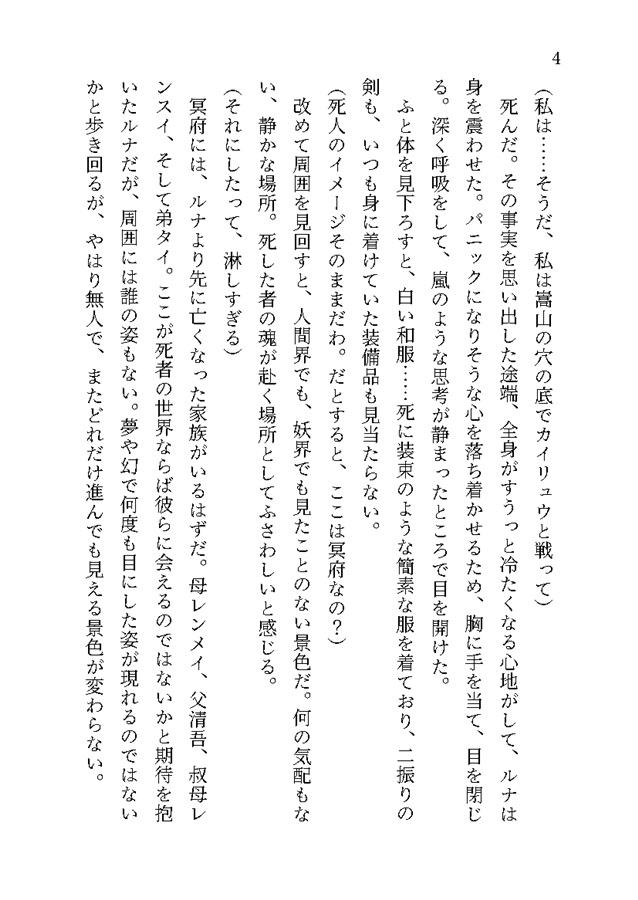 4
(私は……そうだ、私は嵩山の穴の底でカイリュウと戦って)
　死んだ。その事実を思い出した途端、全身がすうっと冷たくなる心地がして、ルナは
身を震わせた。パニックになりそうな心を落ち着かせるため、胸に手を当て、目を閉じ
る。深く呼吸をして、嵐のような思考が静まったところで目を開けた。
　ふと体を見下ろすと、白い和服……死に装束のような簡素な服を着ており、二振りの
剣も、いつも身に着けていた装備品も見当たらない。
(死人のイメージそのままだわ。だとすると、ここは冥府なの？)
　改めて周囲を見回すと、人間界でも、妖界でも見たことのない景色だ。何の気配もな
い、静かな場所。死した者の魂が赴く場所としてふさわしいと感じる。
(それにしたって、淋しすぎる)
　冥府には、ルナより先に亡くなった家族がいるはずだ。母レンメイ、父清吾、叔母レ
ンスイ、そして弟タイ。ここが死者の世界ならば彼らに会えるのではないかと期待を抱
いたルナだが、周囲には誰の姿もない。夢や幻で何度も目にした姿が現れるのではない
かと歩き回るが、やはり無人で、またどれだけ進んでも見える景色が変わらない。